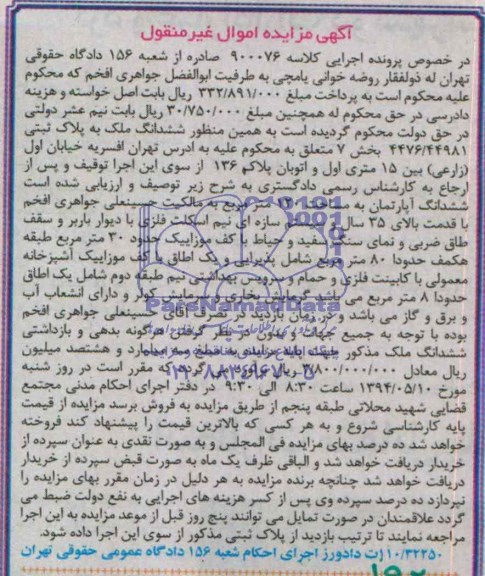 آگهی مزایده اموال غیر منقول
در خصوص پرونده اجرایی کلاسه ۹۰۰۰۷۶ صادره از شعبه ۱۵۶ دادگاه حقوقی
تهران له ذولفقار روضه خوانی یامچی به طرفیت ابوالفضل جواهری افخم که محکوم
علیه محکوم است به پرداخت مبلغ ۳۳۲/۸۹۱/۰۰۰ ریال بابت اصل خواسته و هزینه
دادرسی در حق محکوم له همچنین مبلغ ۳۰/۷۵۰/۰۰۰ ریال بابت نیم عشر دولتی
در حق دولت محکوم گردیده است به همین منظور ششدانگ ملک به پلاک ثبتی
۴۴۷۶/۴۴۹۸۱ بخش ۷ متعلق به محکوم علیه به ادرس تهران افسریه خیابان اول
(زارعی) بین ۱۵ متری اول و اتوبان پلاک ۱۳۶ از سوی این اجرا توقیف و پس از
ارجاع به کارشناس رسمی دادگستری به شرح زیر توصیف و ارزیابی شده است
ششدانگ آپارتمان به مساحت متر مربع به مالکیت حسینعلی جواهری افخم
با قدمت بالای ۳۵ سال سازه ای نیم اسکلت فلزی با دیوار باربر و سقف
طاق ضربی و نمای سنگ سفید و حیاط با کف موزاییک حدود ۳۰ متر مربع طبقه
هکمف حدودا ۸۰ متر مربع شامل پذیرایی و یک اطاق با کف موزاییک آشپزخانه
معمولی با کابینت فلزی و حمام و سرویس بهداشتی نیم طبقه دوم شامل یک اطاق
حدودا ۸ متر مربع می باشد گرمایش بخاری و سرمایش کولر و دارای انشعاب آب
و برق و گاز می باشد و در زمان بازدید در تصرف آقای حسینعلی جواهری افخم
بوده با توجه به جمیع جهات و بدون در نظر گرفتن هرگونه بدهی و بازداشتی
ششدانگ ملک مذکور جهت پایه مزایده به مبلغ سه میلیارد و هشتصد میلیون
ریال معادل ۳/۸۰۰/۰۰۰/۰۰۰ ریال که مقرر است در روز شنبه
مورخ ۱۳۹۴/۰۵/۱۰ ساعت ۸:۳۰ الی ۹:۳۰ در دفتر اجرای احکام مدنی مجتمع
قضایی شهید محلاتی طبقه پنجم از طریق مزایده به فروش برسد مزایده از قیمت
پایه کارشناسی شروع و به هر کسی که بالاترین قیمت را پیشنهاد کند فروخته
خواهد شد ده درصد بهای مزایده فی المجلس و به صورت نقدی به عنوان سپرده از
خریدار دریافت خواهد شد و الباقی ظرف یک ماه به صورت قبض سپرده از خریدار
دریافت خواهد شد چنانچه برنده مزایده به هر دلیل در زمان مقرر بهای مزایده را
نپردازد ده درصد سپرده وی پس از کسر هزینه های اجرایی به نفع دولت ضبط می
گردد علاقمندان در صورت تمایل می توانند پنج روز قبل از موعد مزایده به این اجرا
مراجعه نمایند تا ترتیب بازدید از پلاک ثبتی مذکور از سوی این اجرا داده شود.
۱۰/۳۲۲۵۰/ت دادورز اجرای احکام شعبه ۱۵۶ دادگاه عمومی حقوقی تهران
ParsNamadData